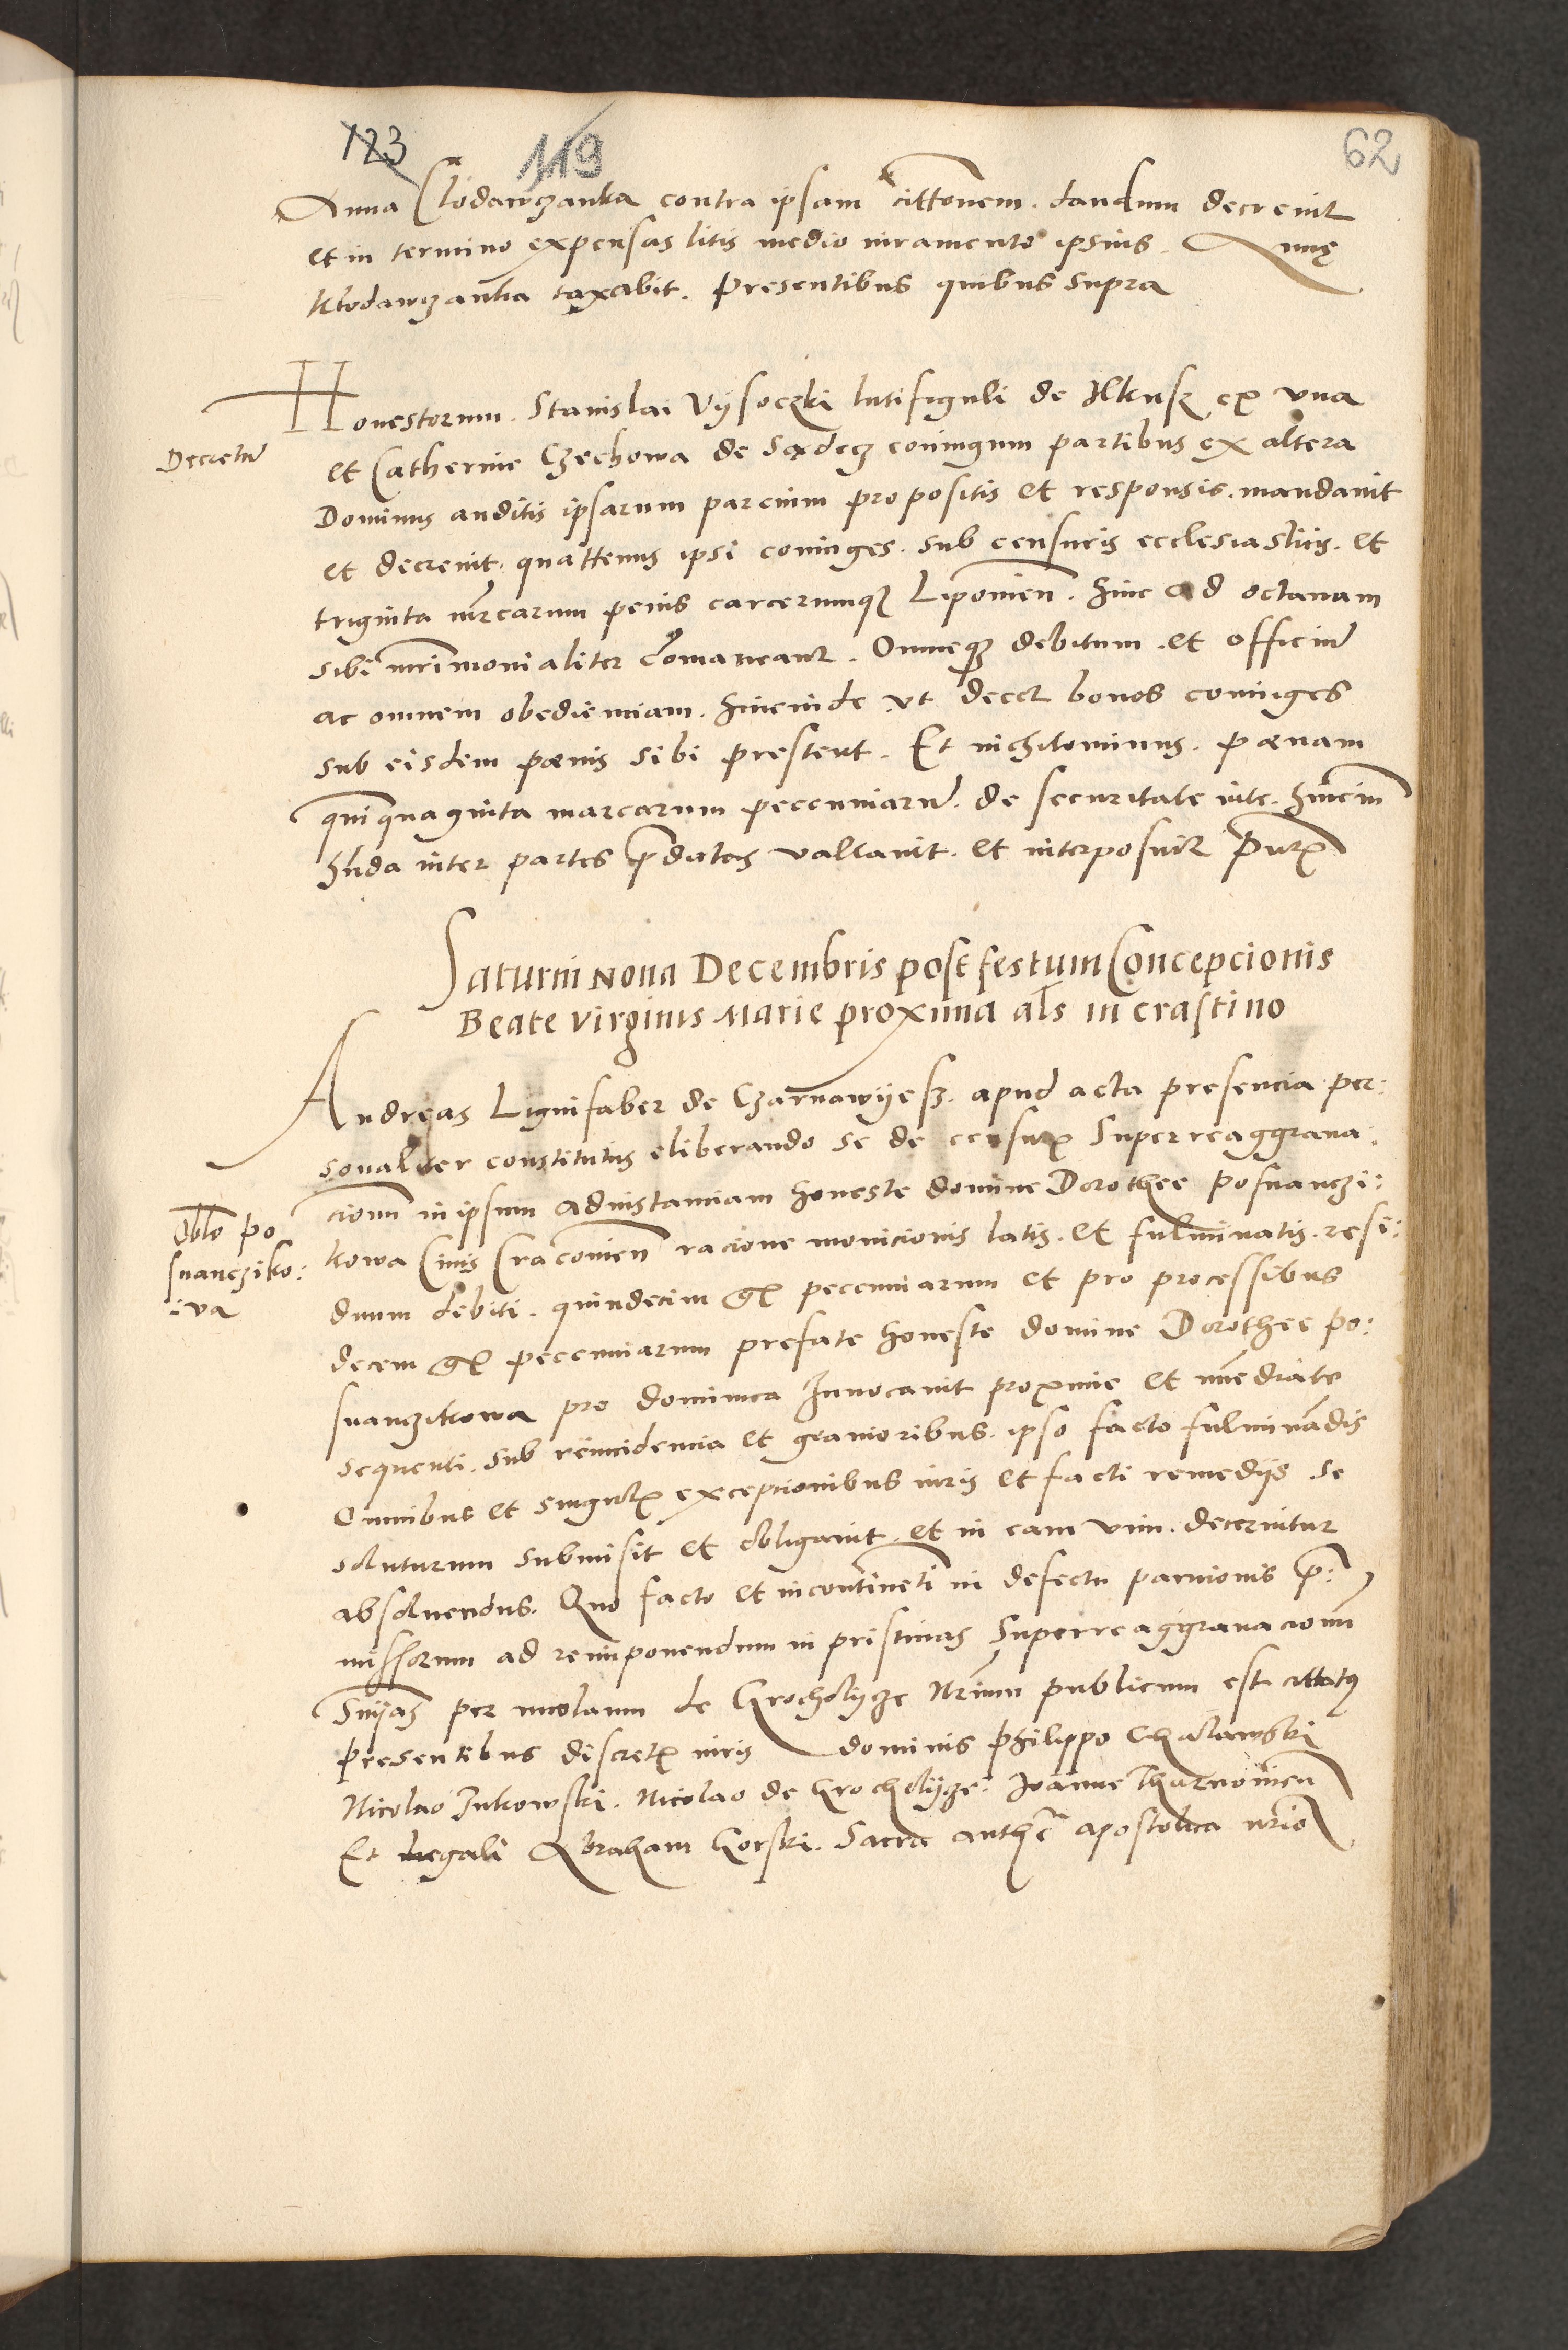 123 119 62
Anna Clodawczanka contra ipsam cittonem. dandum decrevit
et in termino expensas litis medio iuramento ipsius. Annę
Klodawczanka taxabit. Presentibus quibus supra
Honestorum. Stanislai Vÿsoczki lutifiguli de Ilkusz ex vna
Decretum
et Catherine Czechowa de Sandecz coniugum partibus ex altera
Dominus auditis ipsarum parcium propositis et responsis. mandavit
et decrevit. quattenus ipsi coniuges. sub censuris ecclesiasticis. et
triginta mrcarum penis carcerumque Lipovien. hinc ad octavam
sibi mrimonialiter comaneant. Omneque debitum. et officium
ac omnem obedienciam. hincinde vt decet bonos coniuges
sub eisdem pœnis sibi prestent. Et nichilominus. pœnam
quinquaginta marcarum peccuniarum. de securitate inte. hincin
hnda inter partes prdictas vallavit. et interposuit Pntibus
Saturni Nona Decembris post festum Concepcionis
Beate virginis Marie proxima als in crastino
Andreas Lignifaber de Czarnawÿesz. apud acta presencia per:
sonaliter constitutus eliberando se de censuris Superreaggrava:
cionum in ipsum ad instanciam honeste domine Dorothee Posnanczi:
Oblo Po
snancziko:
:va
kowa Civis Cracovien racione monicionis latis. et fulminatis. resi:
duum debiti. quindecim gr peccuniarum et pro processibus
decem gr peccuniarum prefate honeste domine Dorothee Po:
snanczikowa pro dominica Invocavit proxime et immediate
sequenti. sub reincidencia et gravioribus. ipso facto fulminandis
Omnibus et singulis excepcionibus iuris et facti remedÿs se
soluturum submisit et obligavit. et in eam vim. decernitur
absolvendus. Quo facto et incontineti in defectu paricionis pre:
missorum ad reimponendum in pristinas Superreaggravacionum
Snÿas per nicolaum de Grocholÿcze Nrium publicum est cittatus
Presentibus discretis viris dominis Philippo Chaclawski
Nicolao Zukowski. Nicolao de Grocholÿcze. Joanne Tharnovien
Et legali Abraham Gorski. Sacra authca apostolica nrio